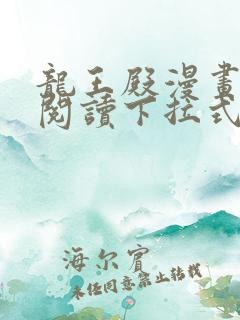 龍王殿漫畫
閱讀下拉式
海尔賓
未任同意禁止转载